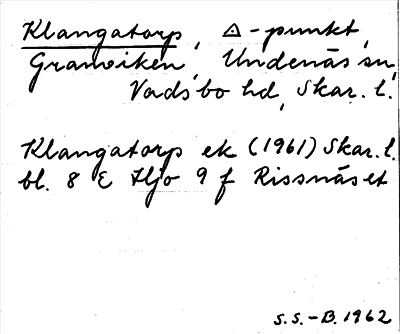 Klangatorp, △-punkt,
Granviken, Undenäs sn,
Vadsbo hd, Skar. l.
Klangatorp ek (1961) Skar. l.
bl. 8 E Hjo 9 f Rissnäset
S.S.-B. 1962